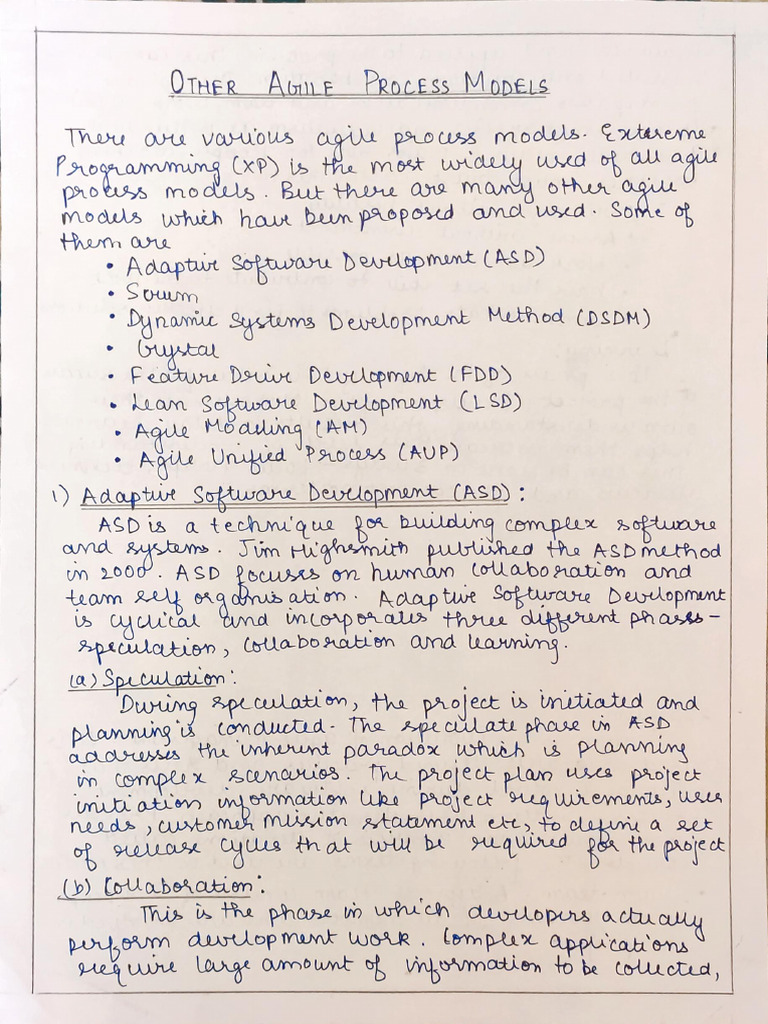 OTHER AGILE PROCESS MODELS
There are various agile process models. Extreme
Programming (XP) is the most widely used of all agile
process models. But there are many other agile
models which have been proposed and used. Some of
them are
• Adaptive Software Development (ASD)
• Scrum
• Dynamic Systems Development Method (DSDM)
• Crystal
• Feature Drive Development (FDD)
• Lean Software Development (LSD)
• Agile Modeling (AM)
• Agile Unified Process (AUP)
1) Adaptive Software Development (ASD):
ASD is a technique for building complex software
and systems. Jim Highsmith published the ASD method
in 2000. ASD focuses on human collaboration and
team self organisation. Adaptive Software Development
is cyclical and incorporates three different phases-
speculation, collaboration and learning.
(a) Speculation:
During speculation, the project is initiated and
planning is conducted. The speculate phase in ASD
addresses the inherent paradox which is planning
in complex scenarios. The project plan uses project
initiation information like project requirements, user
needs, customer mission statement etc, to define a set
of release cycles that will be required for the project
(b) Collaboration:
This is the phase in which developers actually
perform development work. Complex applications
require large amount of information to be collected,